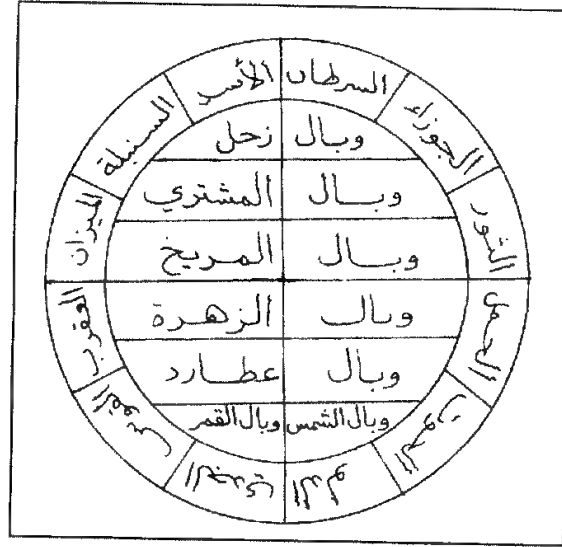 السرطان
الأسد
السنبلة
الميزان
العقرب
القوس
الجدي
الدلو
الحوت
الحمل
الثور
الجوزاء
وبال زحل
وبال المشتري
وبال المريخ
وبال الزهرة
وبال عطارد
وبال الشمس وبال القمر